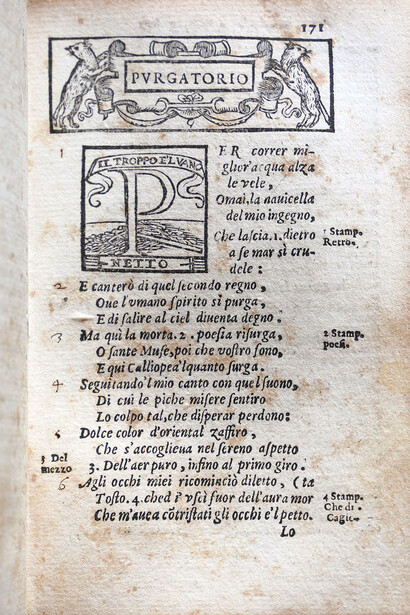 171
PVRGATORIO
IL TROPPO E'L VANO
P
NETTO
1
ER correr mi-
glior'acqua alza
le vele,
Omai, la nauicella
del mio ingegno,
Che lascia .1. dietro
a se mar sì cru-
dele:
1 Stamp.
Retro.
2 E canterò di quel secondo regno,
Oue l'vmano spirito si purga,
E di salire al ciel diuenta degno.
3 Ma quì la morta .2. poesia risurga,
O sante Muse, poi che vostro sono,
E qui Calliopea'lquanto surga.
2 Stamp.
poesi.
4 Seguitando'l mio canto con quel suono,
Di cui le piche misere sentiro
Lo colpo tal, che disperar perdono:
5 Dolce color d'oriental zaffiro,
Che s'accoglieua nel sereno aspetto
3. Dell'aer puro, infino al primo giro.
3 Del
mezzo
6 Agli occhi miei ricominciò diletto, (ta
Tosto .4. ched i' vscì fuor dell'aura mor
Che m'auea cõtristati gli occhi e'l petto.
4 Stamp.
Che di.
Cagic.
Lo